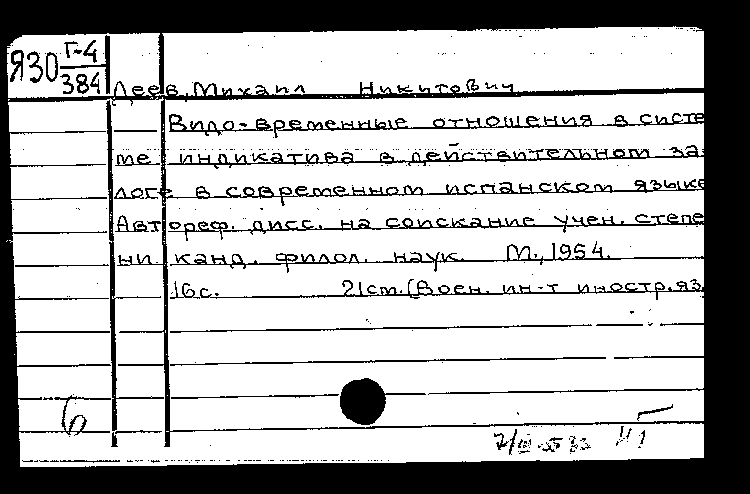 Я30 Г-4
384
Деев, Михаил Никитович
Видо-временные отношения в систе
ме индикатива в действительном за-
логе в современном испанском языке
Автореф. дисс. на соискание учен. степе
ни канд. филол. наук. М., 1954.
16с. 21cm. (Воен. ин-т иностр. яз.
6